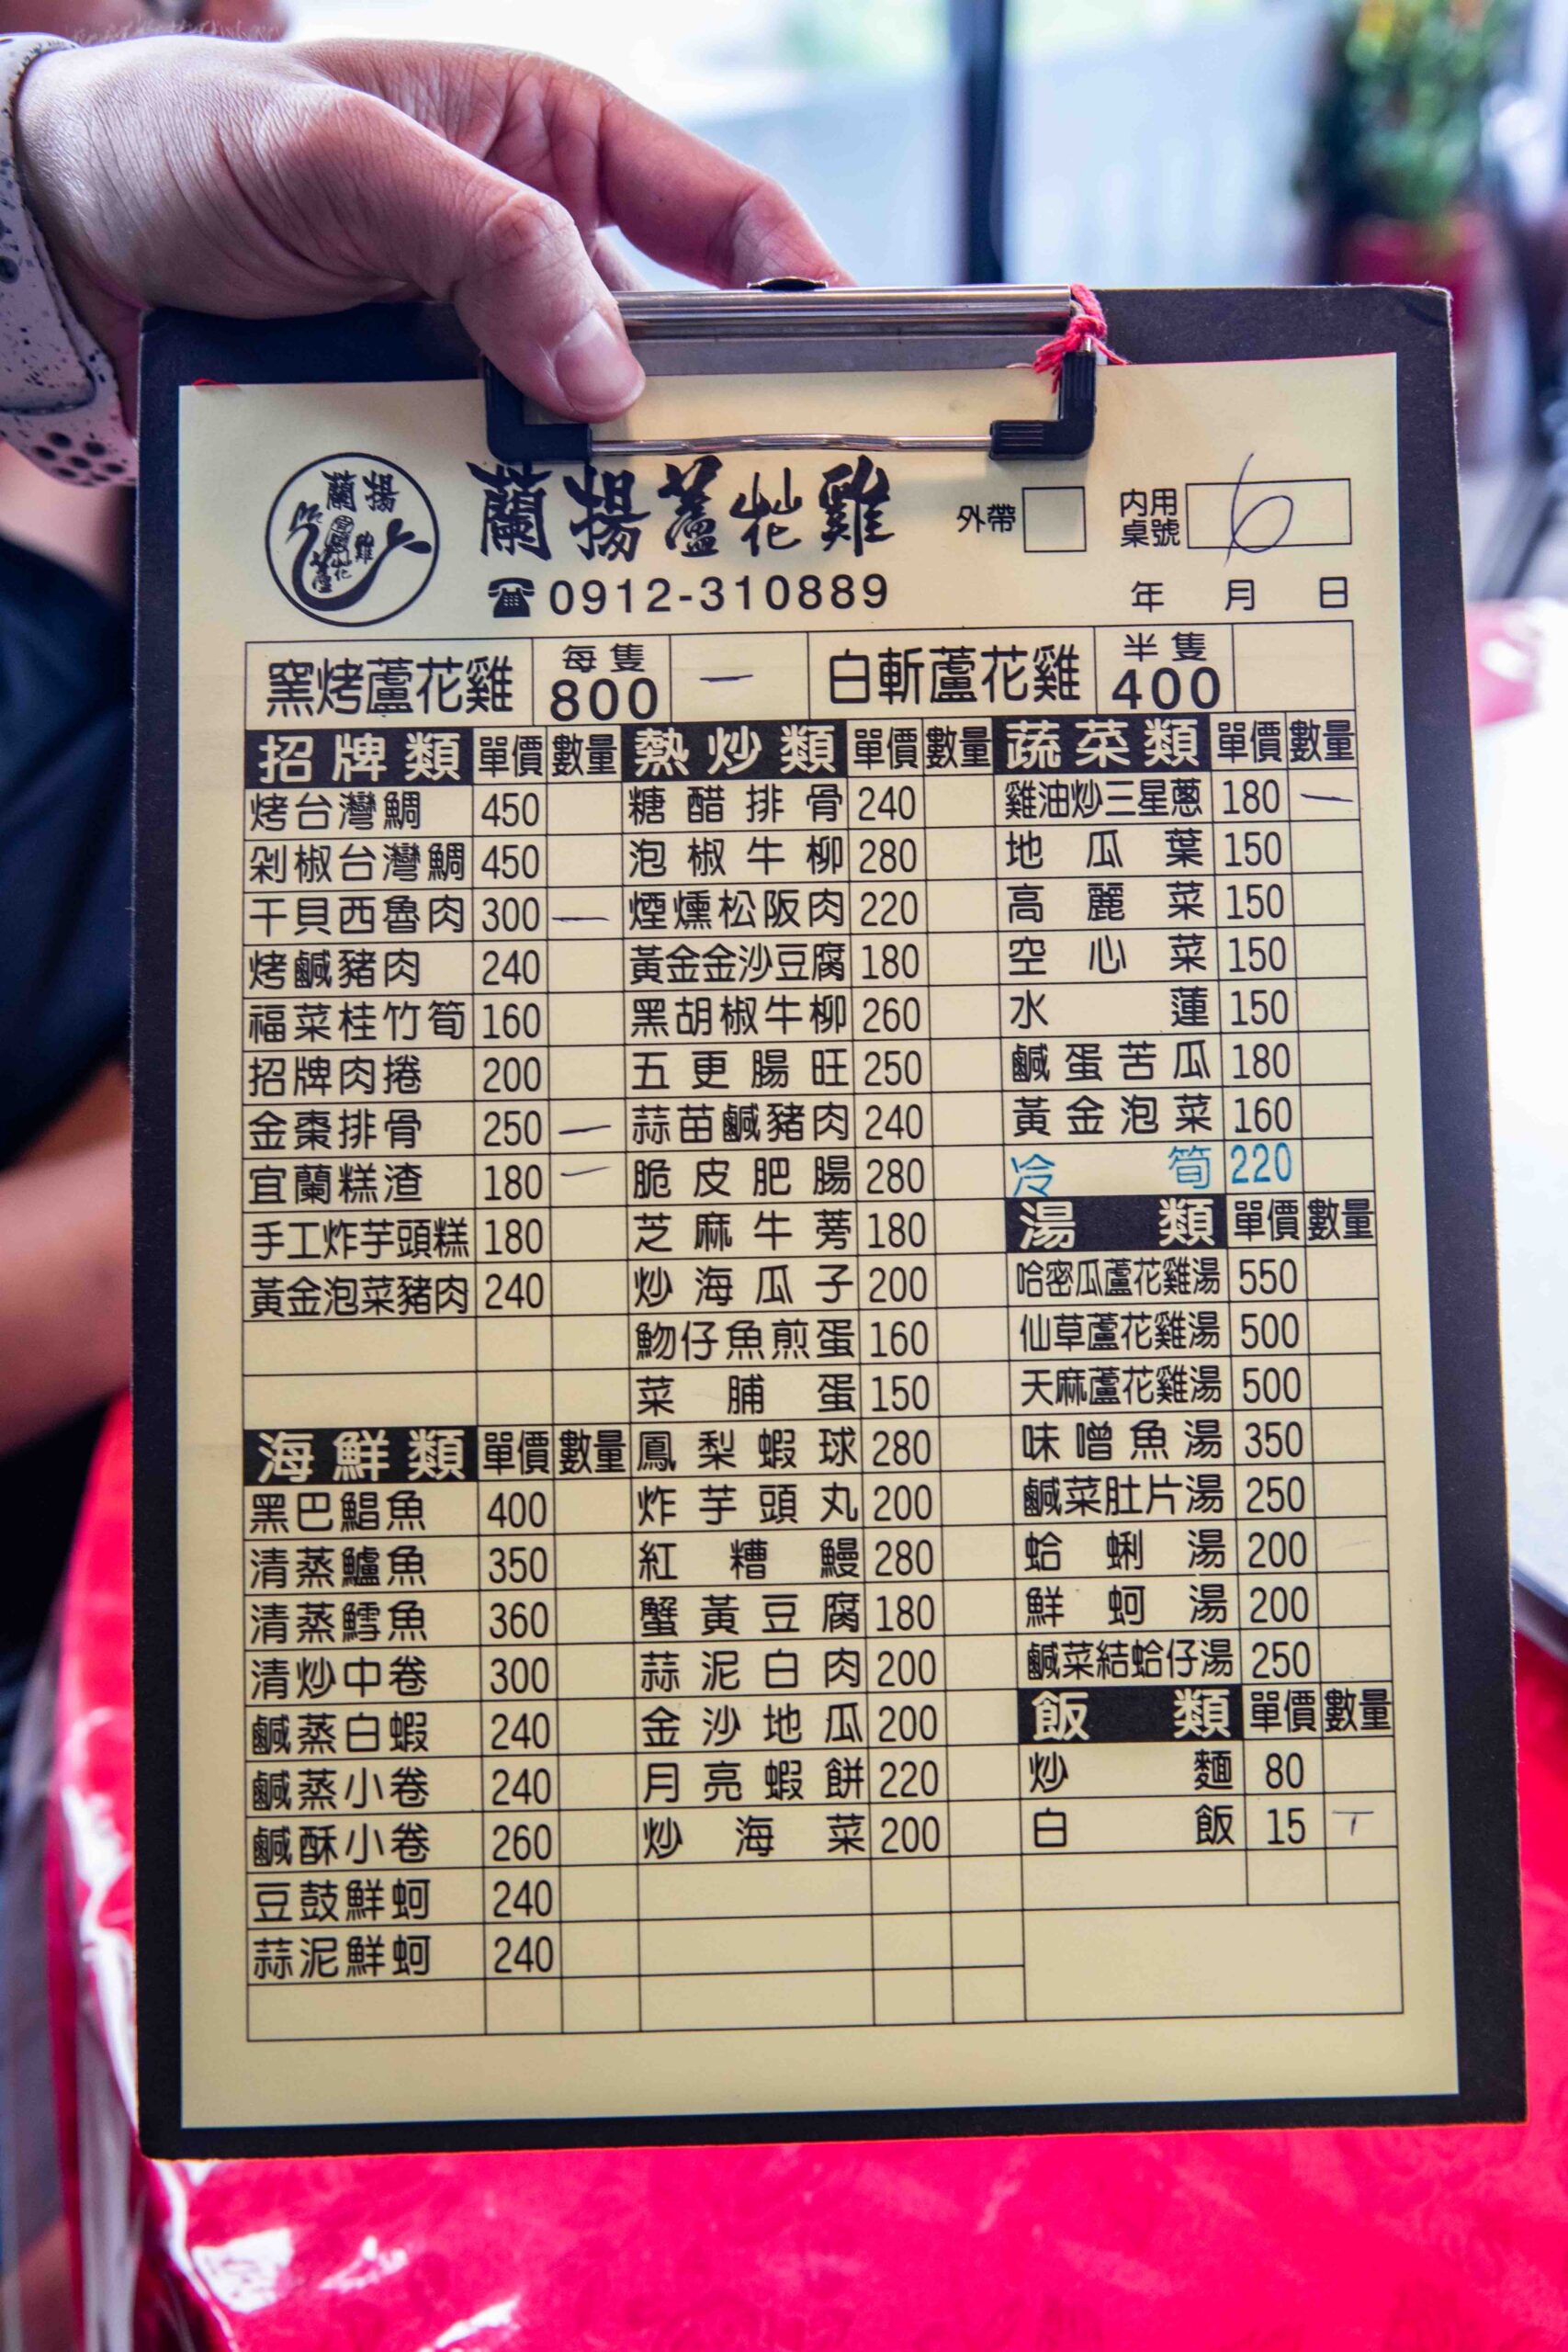 蘭揚
蘆花雞
蘭揚蘆花雞
外帶
內用桌號 6
☎0912-310889
年 月 日
窯烤蘆花雞 每隻 800 一 白斬蘆花雞 半隻 400
招牌類 單價 數量
烤台灣鯛 450
剁椒台灣鯛 450
干貝西魯肉 300 一
烤鹹豬肉 240
福菜桂竹筍 160
招牌肉捲 200
金棗排骨 250 一
宜蘭糕渣 180 一
手工炸芋頭糕 180
黃金泡菜豬肉 240
海鮮類 單價 數量
黑巴鯧魚 400
清蒸鱸魚 350
清蒸鱈魚 360
清炒中卷 300
鹹蒸白蝦 240
鹹蒸小卷 240
鹹酥小卷 260
豆鼓鮮蚵 240
蒜泥鮮蚵 240
熱炒類 單價 數量
糖醋排骨 240
泡椒牛柳 280
煙燻松阪肉 220
黃金金沙豆腐 180
黑胡椒牛柳 260
五更腸旺 250
蒜苗鹹豬肉 240
脆皮肥腸 280
芝麻牛蒡 180
炒海瓜子 200
魩仔魚煎蛋 160
菜脯蛋 150
鳳梨蝦球 280
炸芋頭丸 200
紅糟鰻 280
蟹黃豆腐 180
蒜泥白肉 200
金沙地瓜 200
月亮蝦餅 220
炒海菜 200
蔬菜類 單價 數量
雞油炒三星蔥 180 一
地瓜葉 150
高麗菜 150
空心菜 150
水蓮 150
鹹蛋苦瓜 180
黃金泡菜 160
冷筍 220
湯類 單價 數量
哈密瓜蘆花雞湯 550
仙草蘆花雞湯 500
天麻蘆花雞湯 500
味噌魚湯 350
鹹菜肚片湯 250
蛤蜊湯 200
鮮蚵湯 200
鹹菜結蛤仔湯 250
飯類 單價 數量
炒麵 80
白飯 15 T